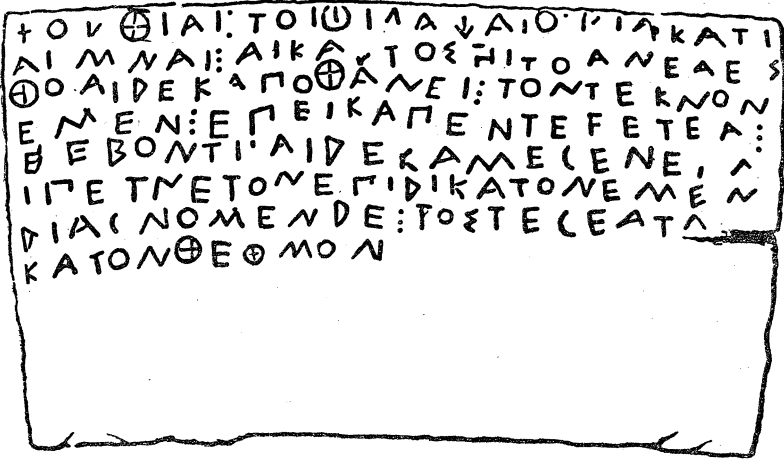 +ΟVΘΙΑΙ⋮ΤΟΙΦΙΛΑ↓ΑΙΟ⋮ΔΙΑΚΑΤΙ
ΑΙΜΝΑΙ⋮ΑΙΚΑVΤΟΣΗΙΤΟΑΝΕΛΕΣ
ΘΟΑΙΔΕΚΑΠΟΘΑΝΕΙ⋮ΤΟΝΤΕΚΝΟΝ
ΕΜΕΝ⋮ΕΠΕΙΚΑΠΕΝΤΕϜΕΤΕΑ⋮
ΗΕΒΟΝΤΙ⋮ΑΙΔΕΚΑΜΕΓΕΝΕ
ΕΠΙΔΙΚΑΤΟΝΕΜΕΝ
ΔΙΑΓΝΟΜΕΝΔΕ⋮ΤΟΣΤΕΓΕΑΤΑ
ΚΑΤΟΝΘΕΘΜΟΝ